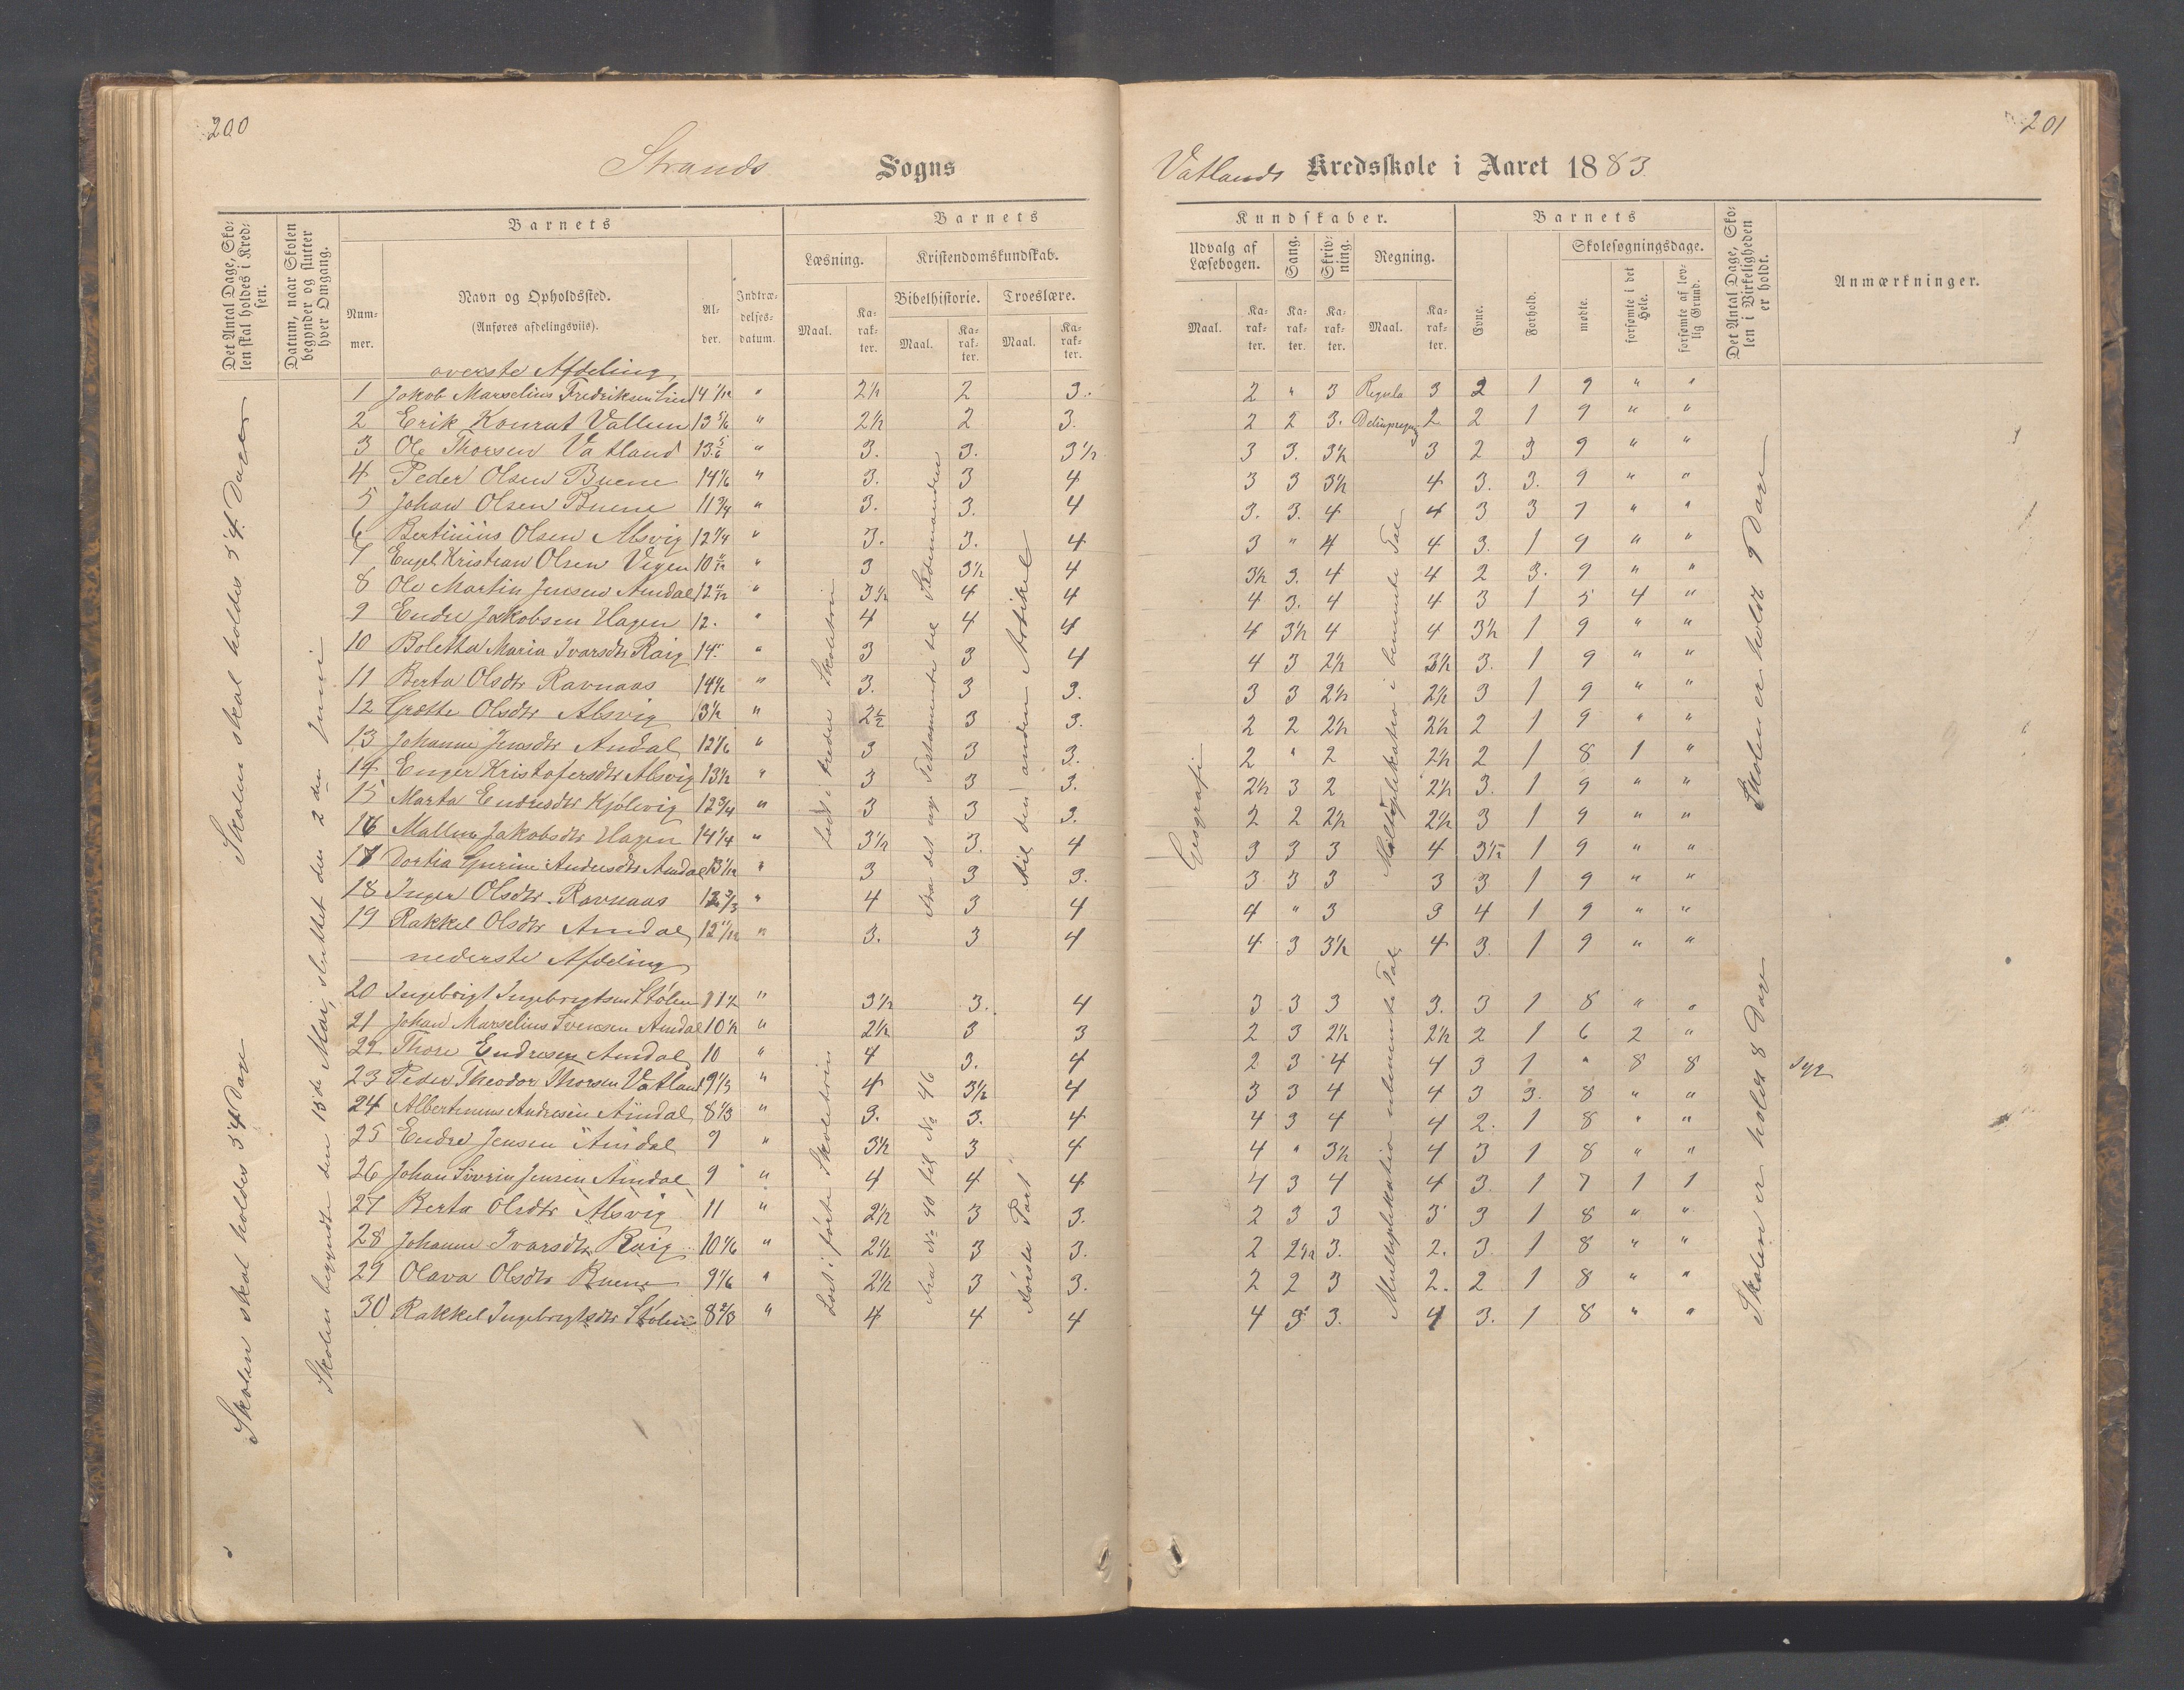 200
201
Strands Sogns
Vatlands Kredsskole i Aaret 1883.
Det Antal Dage, Skolen skal holdes i Kredsen.
Datum, naar Skolen begynder og slutter hver Omgang.
Barnets
Nummer.
Navn og Opholdssted.
(Anføres afdelingsviis).
Alder.
Indtrædelsesdatum.
Barnets
Læsning.
Kristendomskundskab.
Bibelhistorie.
Troeslære.
Maal.
Karakter.
Maal.
Karakter.
Maal.
Karakter.
Kundskaber.
Udvalg af Læsebogen.
Sang.
Skrivning.
Regning.
Maal.
Karakter.
Karakter.
Karakter.
Maal.
Karakter.
Barnets
Evne.
Forhold.
Skolesøgningsdage.
mødte.
forsømte i det Hele.
forsømte af lovlig Grund.
Det Antal Dage, Skolen i Virkeligheden er holdt.
Anmærkninger.
øverste Afdeling
1 Jokob Marselius Fredriksen Lind 14 1/12 " 2½ 2 3. 2 " 3 Regula 3 2 1 9 " "
2 Erik Konrat Vallum 13 5/6 " 2½ 2 3. 2 2 3. 2 2 1 9 " "
3 Ole Thorsen Vatland 13 5/6 " 3. 3. 3½ 3 3. 3½ 3 2 3 9 " "
4 Peder Olsen Buene 14 1/6 " 3. 3 4 3 3 3½ 4 3. 3. 9 " "
5 Johan Olsen Buene 11 3/4 " 3. 3. 4 3. 3. 4 4 3 3 9 " "
6 Bertinius Olsen Alsvig 12 1/4 " 3. 3. 4 3 " 4 4 3. 1 9 " "
7 Engel Kristian Olsen Vigen 10 " 3 3½ 4 3½ 3. 4 4 2 3. 9 " "
8 Ole Martin Jensen Amdal 12 " 3½ 4 4 4 3. 4 4 3 1 5 4 "
9 Endre Jakobsen Hagen 12. " 4 4 4 4 3½ 4 4 3½ 1 9 " "
10 Boletha Maria Ivarsdtr Roig 14. " 3 3 4 4 3 2½ 3½ 3. 1 9 " "
11 Berta Olsdtr Ravnaas 14½ " 3. 3 3. 3 3 2½ 2½ 3 1 9 " "
12 Grøtte Olsdtr Alsvig 13½ " 2½ 3 3. 2 2 2½ 2½ 2 1 9 " "
13 Johanne Jensdtr Amdal 12 1/6 " 3 3 3. 2 " 2 2½ 2 1 8 1 "
14 Enger Kristofersdtr Alsvig 13½ " 3 3 3. 2½ 3 2 2½ 3. 1 9 " "
15 Marta Endresdtr Kjølevig 12 3/4 " 3 3 3. 2 2 2½ 2½ 3 1 9 " "
16 Mallene Jakobsdtr Hagen 14 1/4 " 3½ 3. 4 3 3 3 4 3½ 1 9 " "
17 Dortia Gurine Andersdtr Amdal 13 1/12 " 3 3 3. 3 3 3 3 3 1 9 " "
18 Inger Olsdtr. Ravnaas 12 2/3 " 4 3 4 4 " 3 3 4 1 9 " "
19 Rakkel Olsdtr Amdal 12 11/12 " 3. 3 4 4 3 3½ 4 3. 1 9 " "
nederste Afdeling
20 Ingebrigt Ingebrigtsen Stølen 11½ " 3½ 3. 4 3 3 3 3. 3 1 8 " "
21 Johan Marselius Svensen Amdal 10½ " 2½ 3 3 2 3 2½ 2½ 2 1 6 2 "
22 Thore Endresen Amdal 10 " 4 3. 4 2 3 4 4 3 1 " 8 8 syg
23 Peder Theodor Thorsen Vatland 9 1/3 " 4 3½ 4 3 3 4 4 3 3. 8 " "
24 Albertinius Andresen Amdal 8 1/3 " 3. 3. 4 4 3 4 4 2. 1 8 " "
25 Endre Jensen Amdal 9 " 3½ 3 4 4 " 3½ 4 3 1 8 " "
26 Johan Sivrin Jensen Amdal 9 " 4 4 4 4 3 4 4 3. 1 7 1 1
27 Berta Olsdtr Alsvig 11 " 2½ 3 3. 2 3 3 3 3 1 8 " "
28 Johanne Ivarsdtr Roig 10 1/6 " 2½ 3 3. 2 2½ 3. 2. 3. 1 8 " "
29 Olava Olsdtr Buene 9 1/6 " 2½ 3 3. 2 2 3 2. 2 1 8 " "
30 Rakkel Ingebrigtsdtr Stølen 8 2/3 " 4 4 4 4 3 3. 4 3. 1 8 " "
Skolen skal holdes 54 Dage
Skolen skal holdes 54 Dage
Skolen begyndte den 15de Mai, sluttet den 2den Juni
Læst i tredie Skoletrin
Læst i første Skoletrin
Fra det nye Testamente til
Fra No 40 til No 46
Til den anden Artikel
Første Part
Geografi
Multiplikatio i benevnte Tal
Multiplikatio ubenevnte Tal
Skolen er holdt 9 Dage
Skolen er holdt 8 Dage